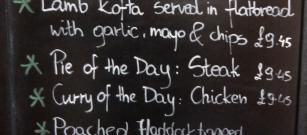 * Lamb Kofta served in flatbread
with garlic, mayo & chips £9.45
* Pie of the Day: Steak £9.45
* Curry of the Day: Chicken £9.45
* Poached Haddock topped